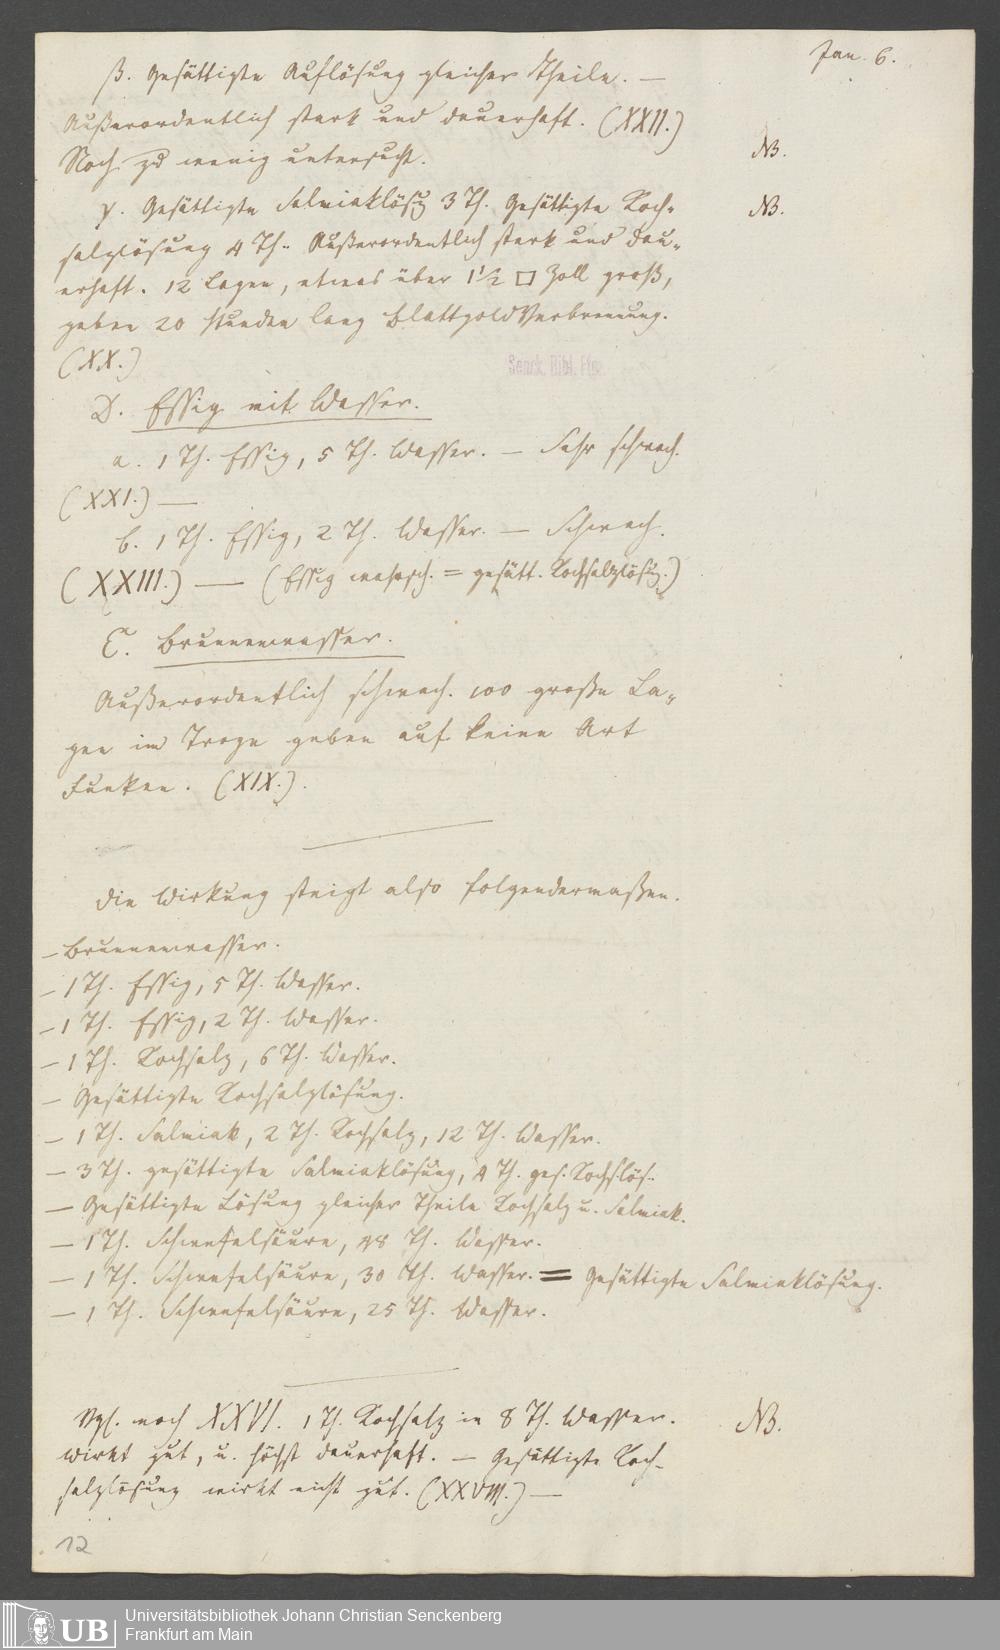 Jan. 6.
β. Gesättigte Auflösung gleicher Theile. —
Außerordentlich stark und dauerhaft. (XXII.)
Noch zu wenig untersucht.
NB.
γ. Gesättigte Salmiaklösung 3 Th. Gesättigte Koch-
NB.
salzlösung 4 Th. Außerordentlich stark und dau-
erhaft. 12 Lagen, etwas über 1 1/2 □ Zoll groß,
geben 20 Stunden lang BlattgoldVerbrennung.
(XX.)
Senck. Bibl. Ffm.
D. Essig mit Wasser.
a. 1 Th. Essig, 5 Th. Wasser. — Sehr schwach.
(XXI.) —
b. 1 Th. Essig, 2 Th. Wasser. — Schwach.
(XXIII.) — (Essig wahrsch. = gesätt. Kochsalzlösung.)
E. Brunnenwasser.
Außerordentlich schwach. 100 große La-
gen im Troge geben auf keine Art
Funken. (XIX.).
Die Wirkung steigt also folgendermaßen.
– Brunnenwasser.
– 1 Th. Essig, 5 Th. Wasser.
– 1 Th. Essig, 2 Th. Wasser.
– 1 Th. Kochsalz, 6 Th. Wasser.
– Gesättigte Kochsalzlösung.
– 1 Th. Salmiak, 2 Th. Kochsalz, 12 Th. Wasser.
– 3 Th. gesättigte Salmiaklösung, 4 Th. ges. Kochs.lös.
– Gesättigte Lösung gleicher Theile Kochsalz u. Salmiak.
– 1 Th. Schwefelsäure, 48 Th. Wasser.
– 1 Th. Schwefelsäure, 30 Th. Wasser. = Gesättigte Salmiaklösung.
– 1 Th. Schwefelsäure, 25 Th. Wasser.
Vgl. noch XXVI. 1 Th. Kochsalz in 8 Th. Wasser.
NB.
wirkt gut, u. höchst dauerhaft. — Gesättigte Koch-
salzlösung wirkt nicht gut. (XXVIII.) —
12
UB
Universitätsbibliothek Johann Christian Senckenberg
Frankfurt am Main